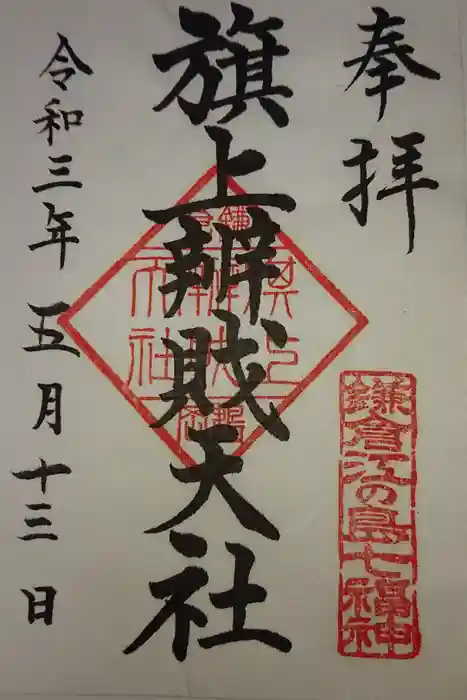 奉拝
鎌倉江の島七福神
旗上辨財天社
令和三年五月十三日